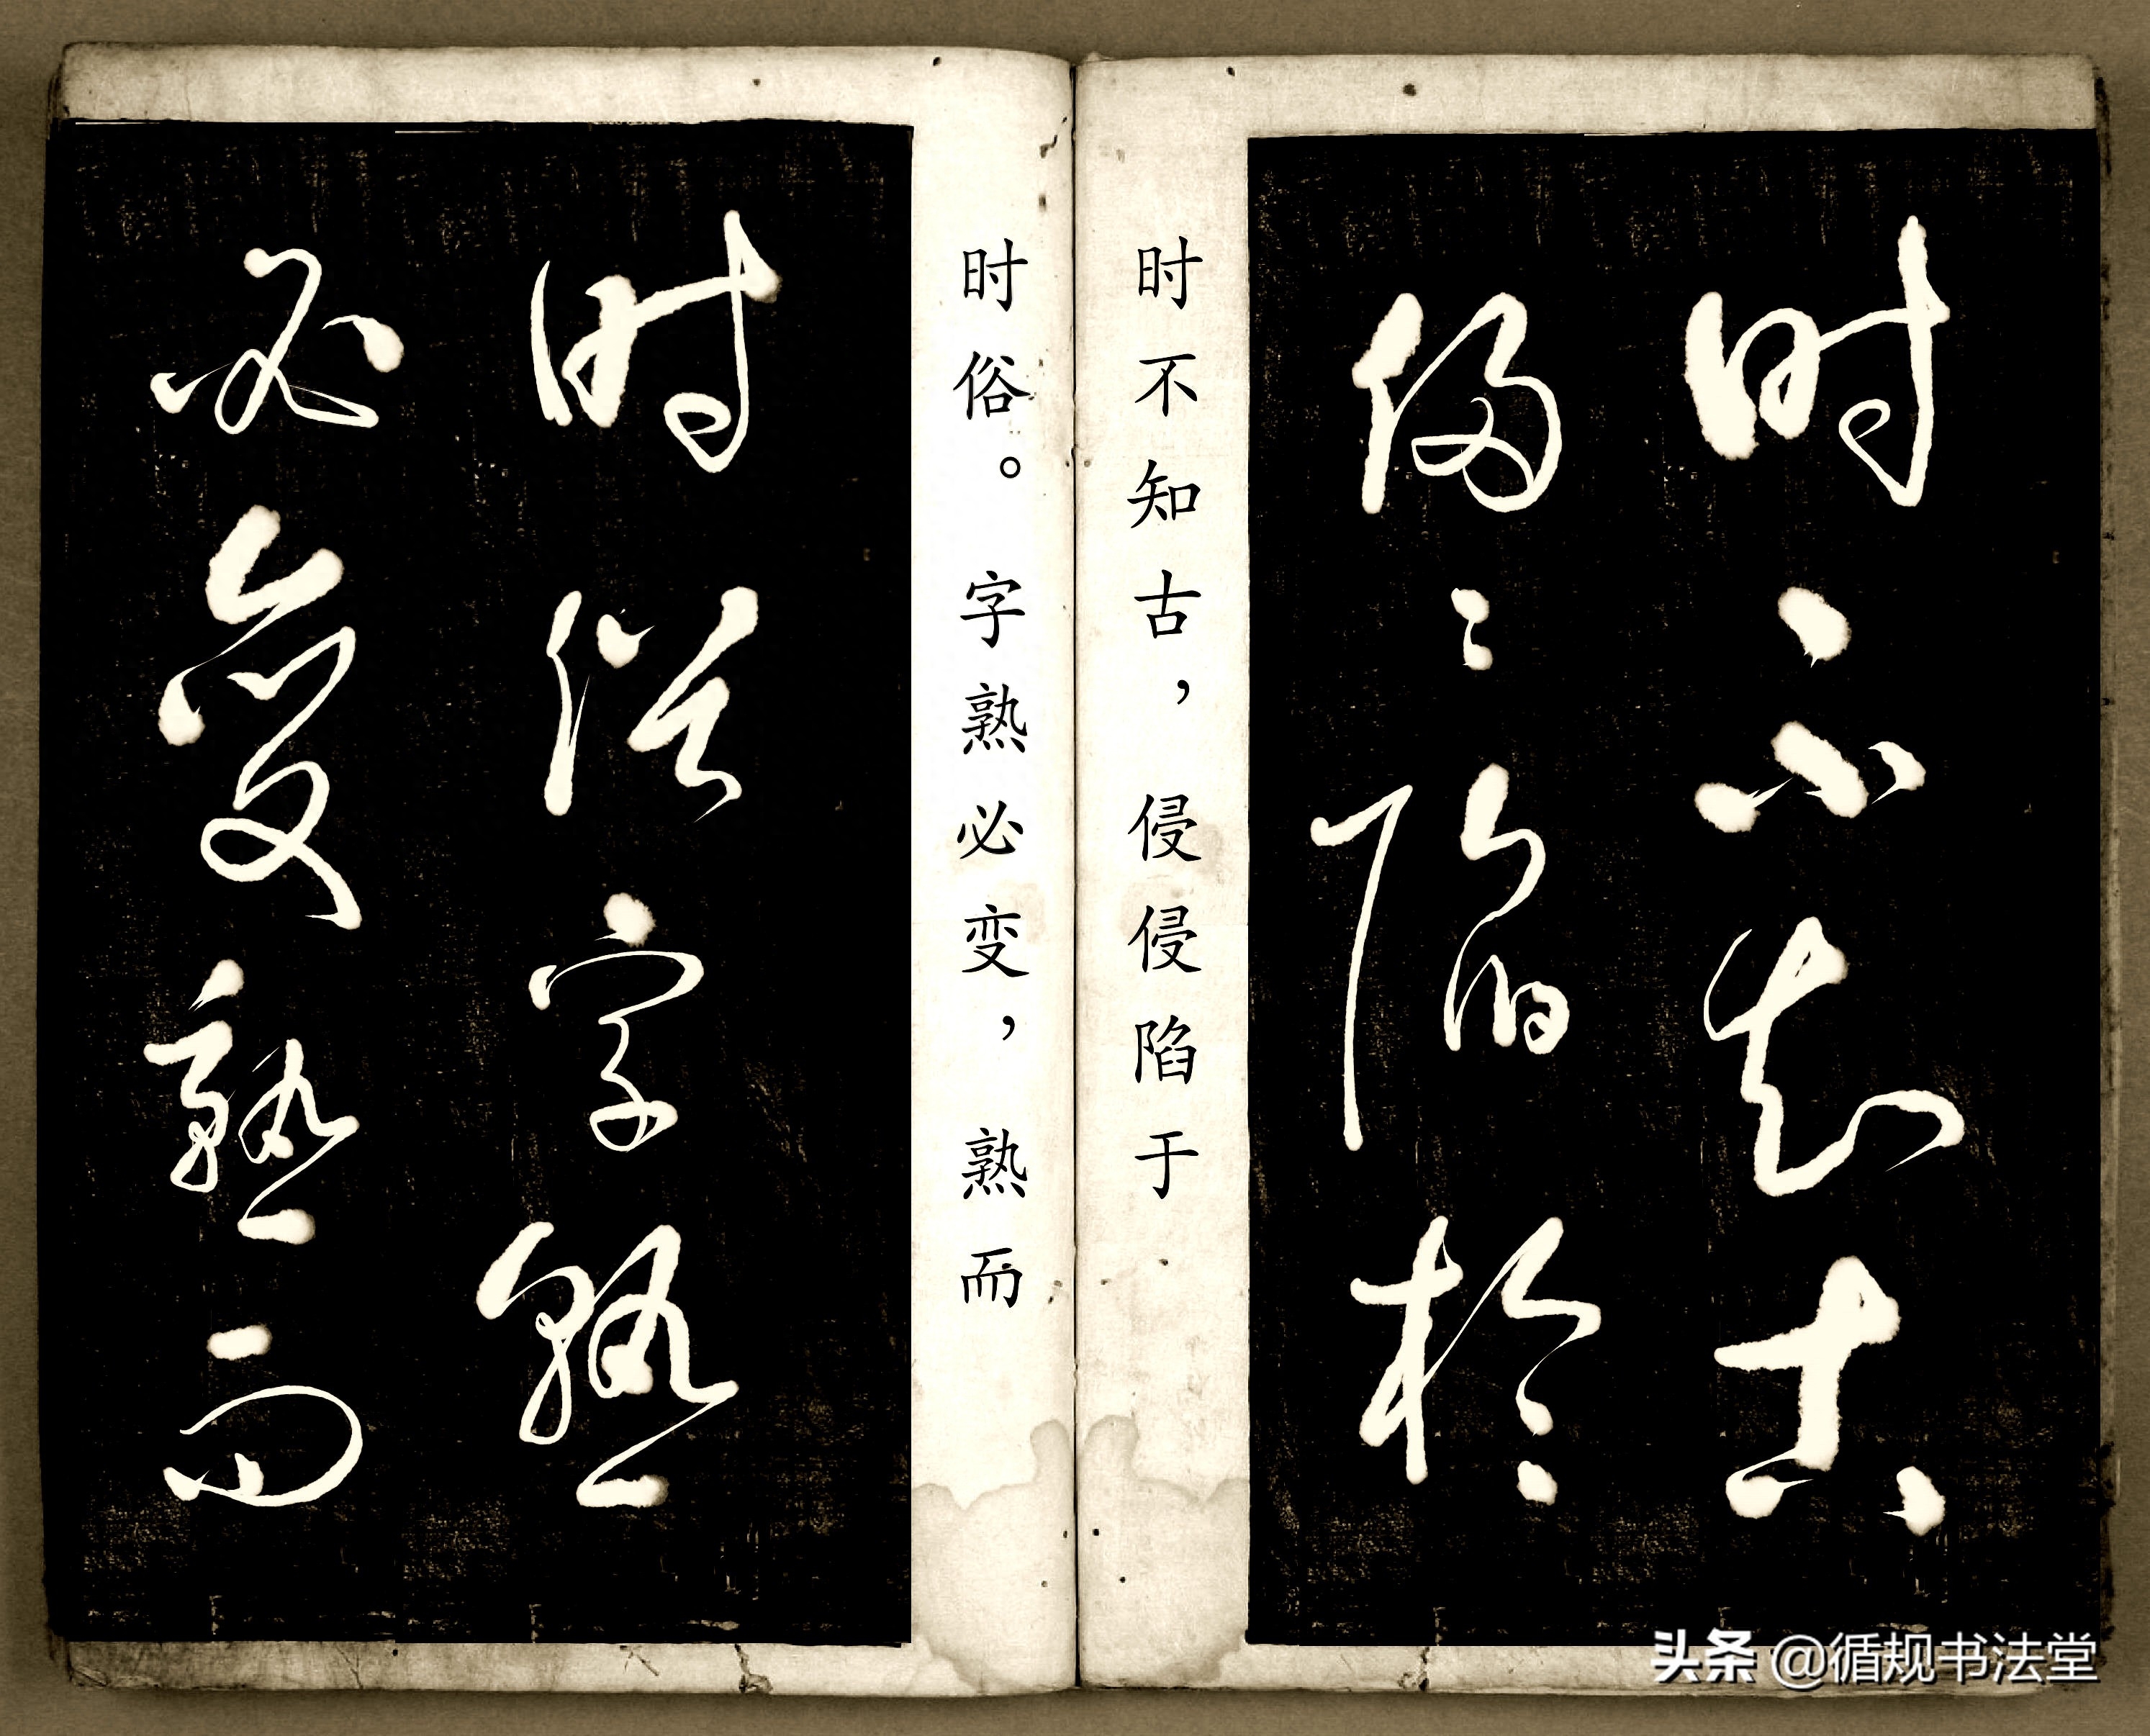 时不知古
侵〻陷於
时不知古，侵侵陷于
时俗。字熟必变，熟而
时俗字熟
必变熟而
头条 @循规书法堂